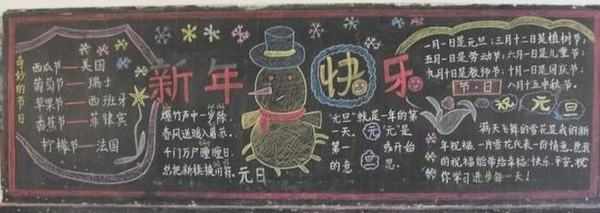 奇妙的节日
西瓜节——美国
葡萄节——瑞士
苹果节——西班牙
香蕉节——菲律宾
柠檬节——法国
新年快乐
爆竹声中一岁除
春风送暖入屠苏
千门万户曈曈日
总把新桃换旧符
元日
"元旦"就是一年的第
一天。元"元"是
第一 或开始
的意 旦
一月一日是元旦;三月十二日是植树节;
五月一日是劳动节;六月一日是儿童节;
九月十日是教师节;十月一日是国庆节;
节·日 八月十五中秋节
祝 元旦
满天飞舞的雪花是我的新
年祝福,一片雪花代表一份情意,愿我
的祝福能带给幸福!快乐、平安,祝
你学习进步每一天!